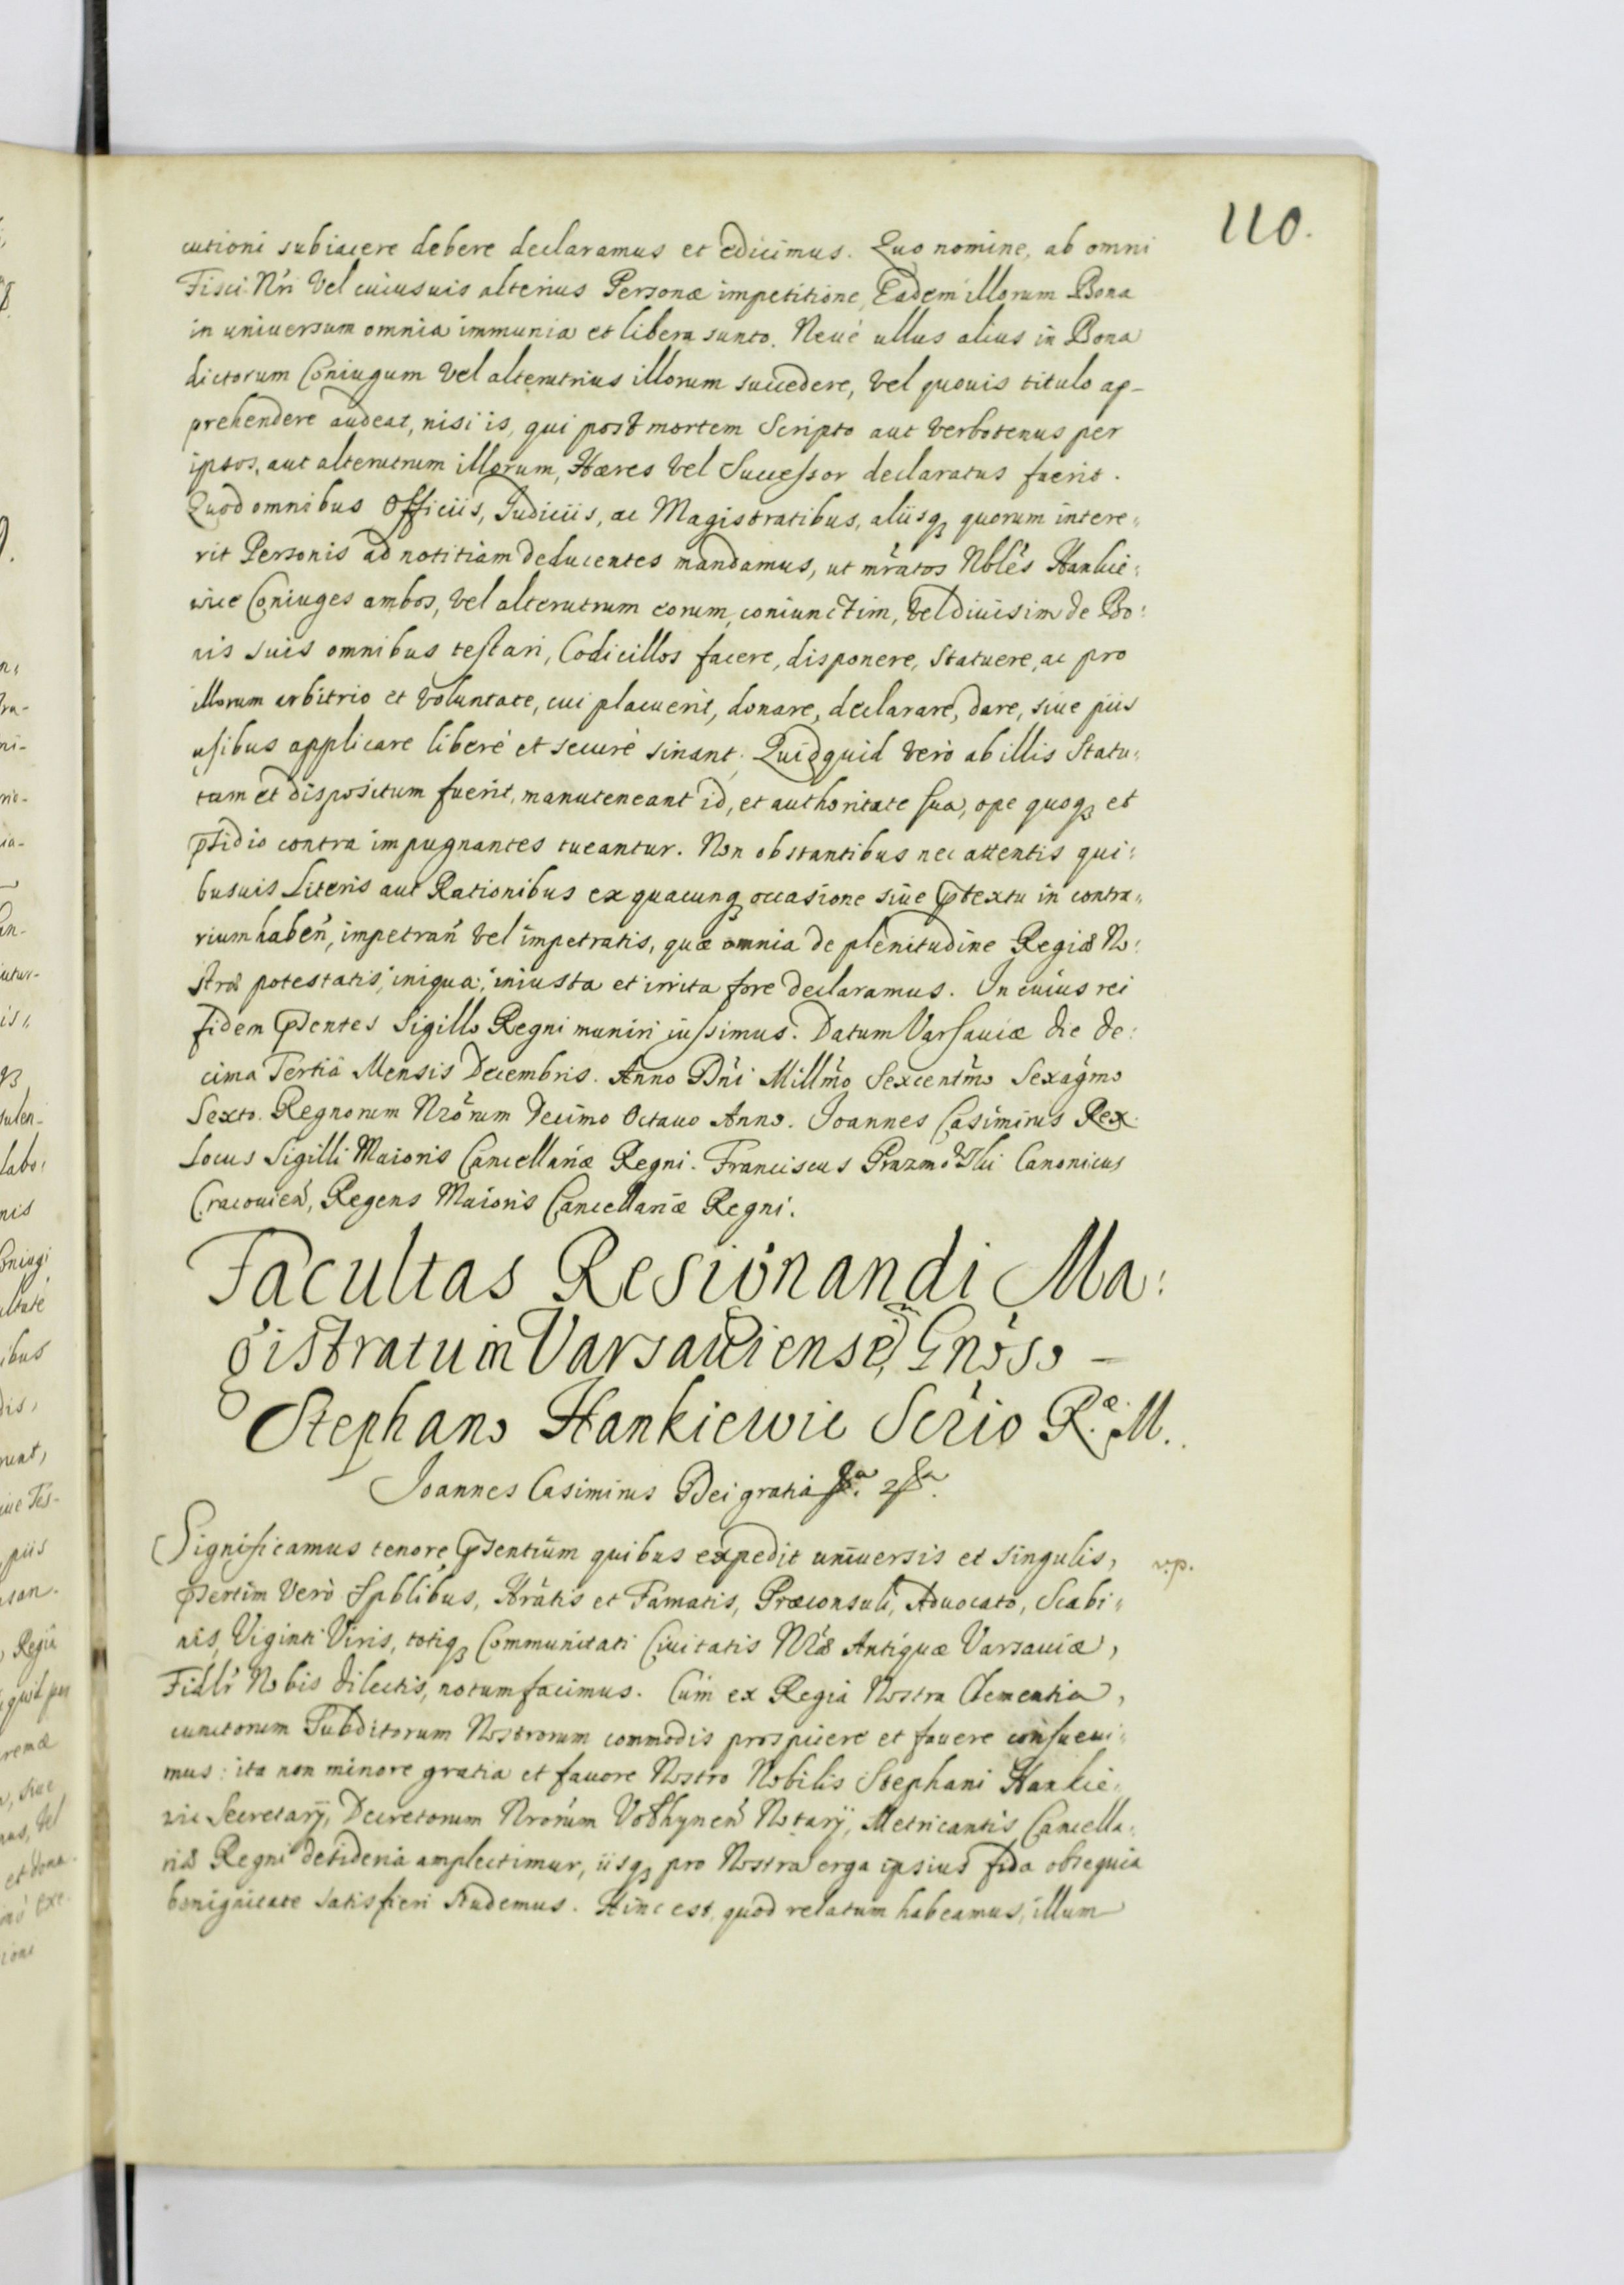 110.
cutioni subiacere debere declaramus et edicimus. Quo nomine, ab omni
Fisci Nri vel cuiusuis alterius Personæ impetitione, Eadem illorum Bona
in uniuersum omnia immunia et libera sunto. Neué ullus alius in Bona
dictorum Coniugum vel alterutrius illorum succedere, vel quouis titulo ap-
prehendere audeat, nisi is, qui post mortem Scripto aut verbotenus per
ipsos, aut alterutrum illorum, Hæres vel Successor declaratus fuerit.
Quod omnibus Officiis, Judiciis, ac Magistratibus, aliisq quorum intere„
rit Personis ad notitiam deducentes mandamus, ut mratos Nbles Hankie:
wice Coniuges ambos, vel alterutrum eorum, coniunctim, vel diuisim de Bo:
nis suis omnibus testari, Codicillos facere, disponere, Statuere, ac pro
illorum arbitrio et voluntate, cui placuerit, donare, declarare, dare, siue piis
usibus applicare liberé et securé sinant. Quidquid verò ab illis Statu„
tum et dispositum fuerit, manuteneant id, et authoritate sua, ope quoq et
psidio contra impugnantes tueantur. Non obstantibus nec attentis qui:
busuis Literis aut Rationibus ex quacunq occasione siue ptextu in contra„
rium haben, impetran vel impetratis, quæ omnia de plenitudine Regiæ No:
stræ potestatis, iniqua, iniusta et irrita fore declaramus. In cuius rei
fidem psentes Sigillo Regni muniri iussimus. Datum Varsauiæ die de:
cima Tertia Mensis Decembris. Anno Dni Millmo Sexcentmo Sexagmo
Sexto. Regnorum Nrorum Decimo Octauo Anno. Joannes Casimirus Rex.
Locus Sigilli Maioris Cancellariæ Regni. Franciscus Prazmowski Canonicus
Cracouien, Regens Maioris Cancellariæ Regni.
Facultas Resignandi Ma:
gistratum Varsauiensem Gnoso –
Stephano Hankiewic Scrio R.æ M.
Joannes Casimirus Dei gratia
Significamus tenore psentium quibus expedit uniuersis et singulis, v.p.
psertim verò Spblibus, Hratis et Famatis, Præconsuli, Aduocato, Scabi„
nis, Viginti Viris, totiq Communitati Ciuitatis Nræ Antiquæ Varsauiæ,
Fidlr Nobis dilectis, notum facimus. Cum ex Regia Nostra Clementia,
cunctorum Subditorum Nostrorum commodis prospicere et fauere consueui„
mus: ita non minore gratia et fauore Nostro Nobilis Stephani Hankie„
wic Secretarÿ, Decretorum Nrorum Volhynen Notarÿ, Metricantis Cancella„
riæ Regni desideria amplectimur, iisq pro Nostra erga ipsius fida obsequia
benignitate satisfieri studemus. Hinc est, quod relatum habeamus, illum